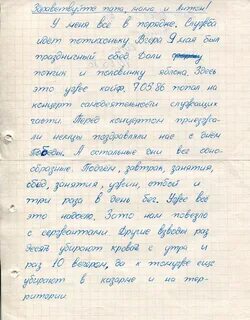 Здравствуйте папа, мама и Антон!
У меня всё в порядке. Служба
идёт потихоньку Вчера 9 мая был
праздничный обед. Дали
пончик и половинку яблока. Здесь
это уже кайф. 7.05.86 попал на
концерт самодеятельности служащих
части. Перед концертом приезжа-
ли немцы поздравляли нас с днём
Победы. А остальные дни все одно-
образные. Подъём, завтрак, занятия,
обед, занятия, ужин, отбой и
три раза в день бег. Уже всё
это надоело. Зато нам повезло
с сержантами Другие взводы раз
десять убирают кровати с утра и
раз 10 вечером, да к тому же ещё
убирают в казарме и на тер-
ритории